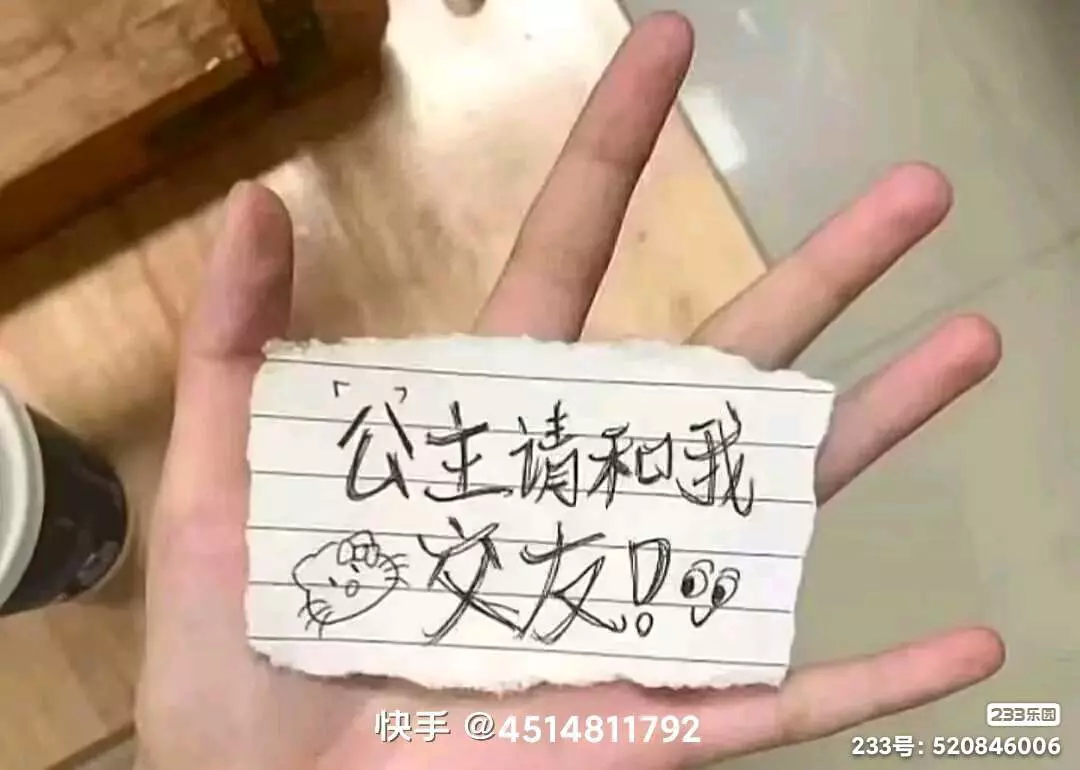 「公」主请和我
交友!
快手 @4514811792
233乐园
233号: 520846006